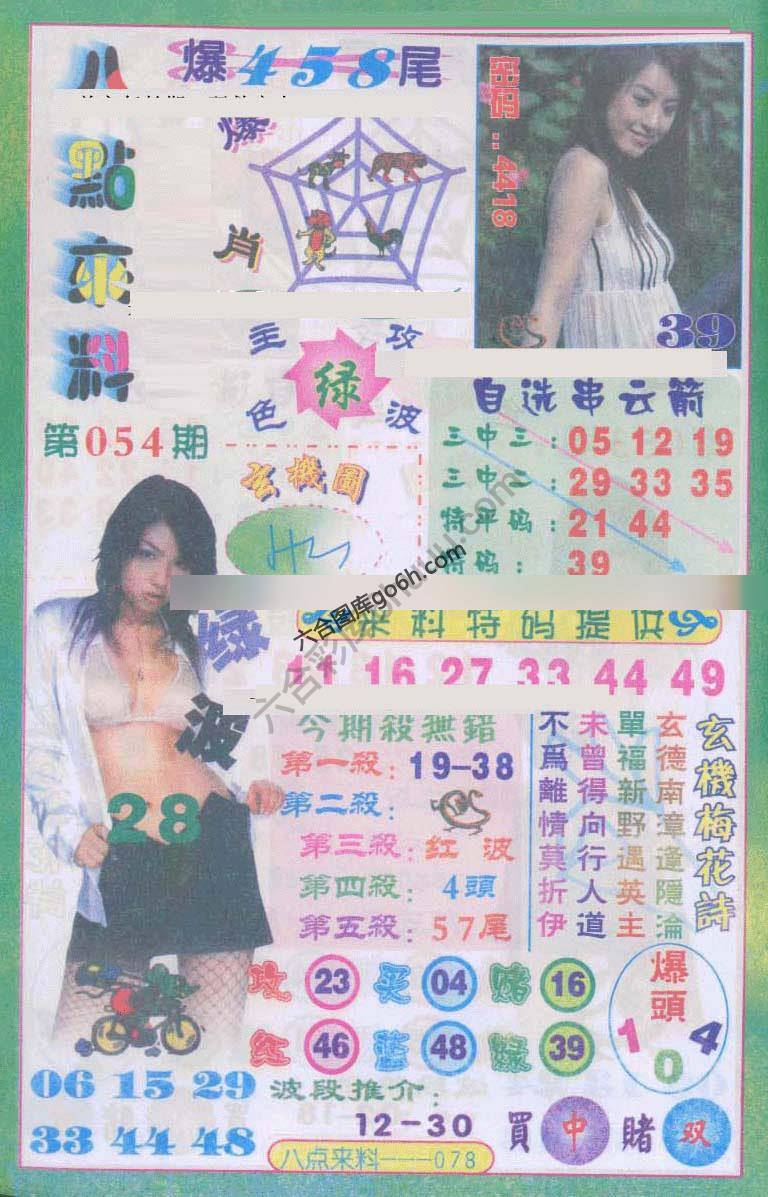 八點來料
爆458尾
爆肖
密密..4418
39
主攻
绿
色波
第054期
玄機圖
自选串云箭
三中三:05 12 19
三中二:29 33 35
特平码:21 44
特码:39
六合图库go6h.com
绿波
28
来料特码提供
11 16 27 33 44 49
今期殺無錯
第一殺:19-38
第二殺:
第三殺:红波
第四殺:4頭
第五殺:57尾
玄機梅花詩
玄德南漳逢隱淪
單福新野遇英主
未曾得向行人道
不爲離情莫折伊
攻 23 买 04 赌 16
红 46 蓝 48 绿 39
爆頭
1 0 4
06 15 29
33 44 48
波段推介:
12-30
買中賭双
八点来料---078